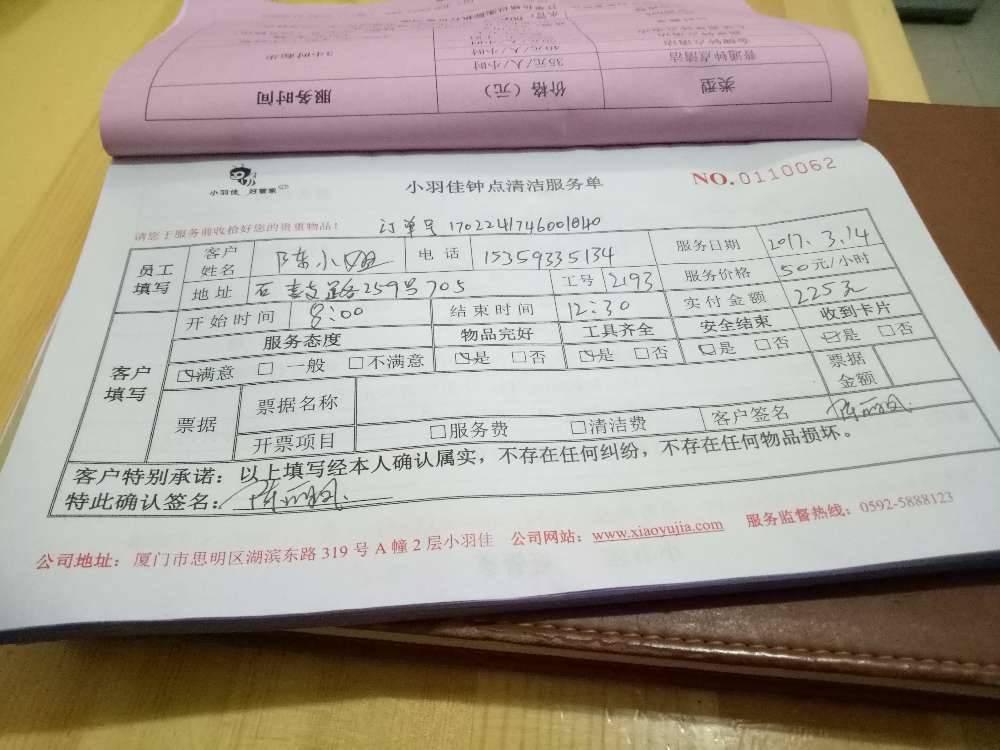 3小时起步
40元/人/小时
金牌钟点清洁
35元/人/小时
普通钟点清洁
服务时间
价格（元）
类型
小羽佳 好管家
小羽佳钟点清洁服务单
NO.0110062
请您于服务前收拾好您的贵重物品！
订单号 1702241746001840
员工填写
客户姓名 陈小姐 电话 15359335134 服务日期 2017.3.14
地址 259号705 工号 2193 服务价格 50元/小时
客户填写
开始时间 8:00 结束时间 12:30 实付金额 225元
服务态度 物品完好 工具齐全 安全结束 收到卡片
☑满意 □ 一般 □不满意 ☑是 □否 ☑是 □否 ☑是 □否 ☑是 □否
票据 票据名称 票据金额
开票项目 □服务费 □清洁费 客户签名
客户特别承诺：以上填写经本人确认属实，不存在任何纠纷，不存在任何物品损坏。
特此确认签名：
公司地址：厦门市思明区湖滨东路 319 号 A 幢 2 层小羽佳 公司网站：www.xiaoyujia.com 服务监督热线：0592-5888123